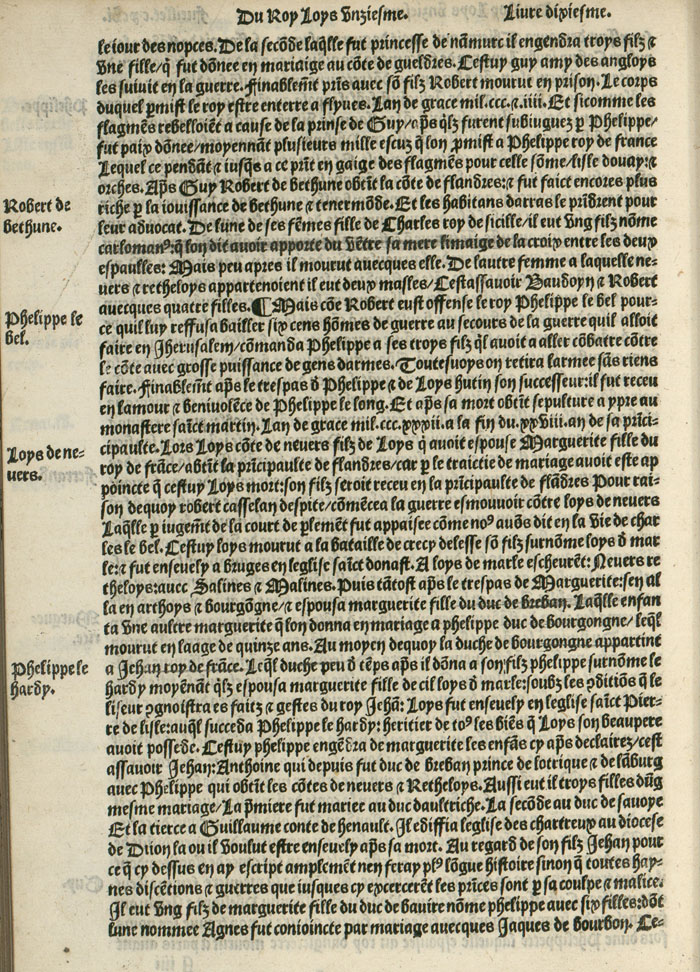 Du Roy Loys vnziesme. Liure dixiesme.
le iour des nopces. De la secõde laq̃lle fut princesse de nãmurc il engendra troys filz ⁊
vne fille/q̃ fut dõnee en mariaige au cõte de gueldres. Cestuy guy amy des angloys
les suiuit en la guerre. Finablem̃t prĩs auec sõ filz Robert mourut en prison. Le corps
duquel ꝑmist le roy estre enterre a flyues. Lan de grace mil.ccc.⁊.iiii. Et sicomme les
flagmẽs rebelloiẽt a cause de la prinse de Guy/ap̃s q̃lz furent subiuguez ꝑ Phelippe/
fut paix dõnee/moyennãt plusieurs mille escuz q̃ lon ꝓmist a Phelippe roy de france
Lequel ce pendãt ⁊ iusq̃s a ce prĩt en gaige des flagmẽs pour celle sõme/lisle douay:⁊
orches. Ap̃s Guy Robert de bethune obtĩt la cõte de flandres:⁊ fut faict encores plus
Robert de
bethune.
riche ꝑ la iouissance de bethune ⁊ tenermõde. Et les habitans darras le prĩdrent pour
leur aduocat. De lune de ses fẽmes fille de Charles roy de sicille/il eut vng filz nõme
carlomanꝰ:q̃ lon dit auoir apporte du vẽtre sa mere limaige de la croix entre les deux
espaulles: Mais peu apres il mourut auecques elle. De lautre femme a laquelle ne-
uers ⁊ retheloys appartenoient il eut deux masles/Cestassauoir Baudoyn ⁊ Robert
auecques quatre filles. ¶ Mais cõe Robert eust offense le roy Phelippe le bel pour-
Phelippe le
bel.
ce quil luy reffusa bailler six cens hõmes de guerre au secours de la guerre quil alloit
faire en Jherusalem/cõmanda Phelippe a ses troys filz q̃l auoit a aller cõbatre cõtre
le cõte auec grosse puissance de gens darmes. Toutesuoys on retira larmee sãs riens
faire. Finablem̃t ap̃s le trespas d̃ Phelippe ⁊ de Loys hutin son successeur:il fut receu
en lamour ⁊ beniuolẽce de Phelippe le long. Et ap̃s sa mort obtĩt sepulture a ypre au
monastere saĩct martin. Lan de grace mil.ccc.xxii. a la fin du.xxviii.an de sa prĩci-
cipaulte. Lors Loys cõte de neuers filz de Loys q̃ auoit espouse Marguerite fille du
Loys de ne-
uers.
roy de frãce/abtĩt la prĩcipaulte de flandres/car ꝑ le traictie de mariage auoit este ap
poincte q̃ cestuy Loys mort:son filz seroit receu en la prĩcipaulte de flãdres Pour rai-
son dequoy robert casselan despite/cõmẽcea la guerre esmouuoir cõtre loys de neuers
Laq̃lle ꝑ iugem̃t de la court de ꝑlemẽt fut appaisee cõme noꝰ auõs dit en la vie de char
les le bel. Cestuy loys mourut a la bataille de crecy delesse sõ filz surnõme loys d̃ mar
le:⁊ fut enseuely a bruges en leglise saĩct donast. A loys de marle escheurẽt: Neuers re
theloys:auec Salines ⁊ Malines. Puis tãtost ap̃s le trespas de Marguerite:sen al
la en arthoys ⁊ bourgõgne/⁊ espousa marguerite fille du duc de breban. Laq̃lle enfan
ta vne aultre marguerite q̃ lon donna en mariage a phelippe duc de bourgongne/leq̃l
mourut en laage de quinze ans. Au moyen dequoy la duche de bourgongne appartint
Phelippe le
hardy.
a Jehan roy de frãce. Leq̃l duche peu d̃ tẽps ap̃s il dõna a son filz phelippe surnõme le
hardy moyẽnãt q̃lz espousa marguerite fille de cil loys d̃ marle:soubz les ꝯditiõs q̃ le
liseur ꝯgnoistra es faitz ⁊ gestes du roy Jehã: Loys fut enseuely en leglise saĩct Pier-
re de lisle:auq̃l succeda Phelippe le hardy: heritier de toꝰ les biẽs q̃ Loys son beaupere
auoit possede. Cestuy phelippe engẽdra de marguerite les enfãs cy ap̃s declairez/cest
assauoir Jehan:Anthoine qui depuis fut duc de breban prince de lotrique ⁊ de lãburg
auec Phelippe qui obtĩt les cõtes de neuers ⁊ Retheloys. Aussi eut il troys filles dũg
mesme mariage/La p̃miere fut mariee au duc daultriche. La secõde au duc de sauoye
Et la tierce a Guillaume conte de henault. Il ediffia leglise des chartreux au diocese
de Diion la ou il voulut estre enseuely aps sa mort. Au regard de son filz Jehan pour
ce q̃ cy dessus en ay escript amplemẽt nen feray plꝰ lõgue histoire sinon q̃ toutes hay-
nes discẽtions ⁊ guerres que iusques cy excercerẽt les prĩces sont ꝑ sa coulpe ⁊ malice.
Il eut vng filz de marguerite fille du duc de bauire nõme phelippe auec six filles:dõt
lune nommee Agnes fut conioincte par mariage auecques Jaques de bourbon. Ce-